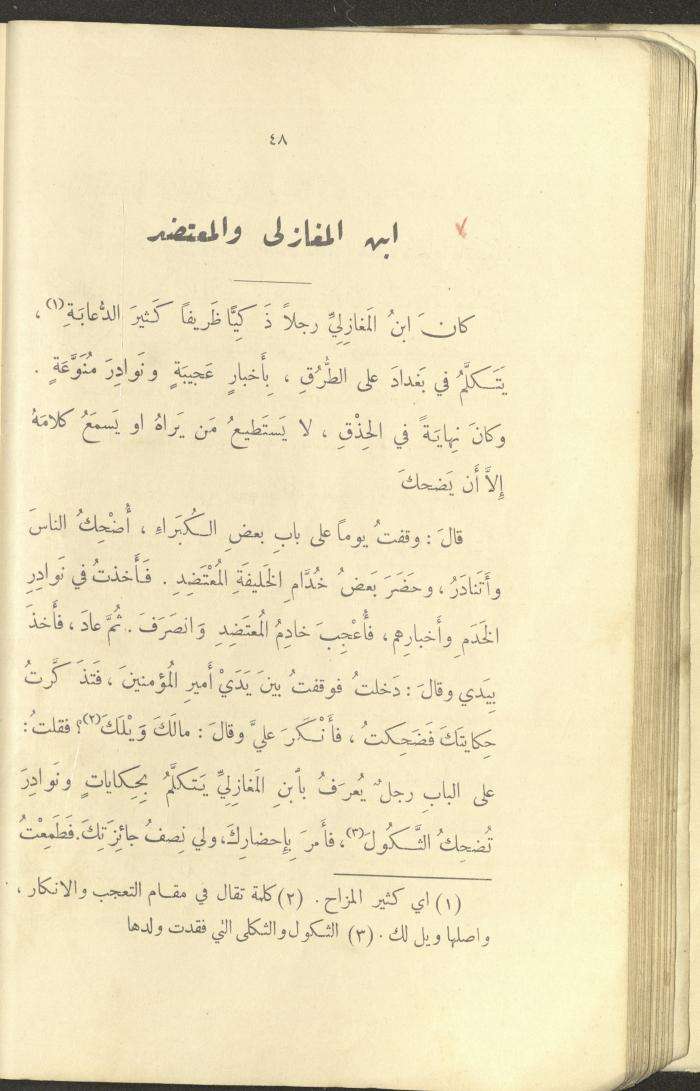 ٤٨
ابن المغازلى والمعتضد
كانَ ابنُ المَغازِليِّ رجلاً ذَكِيًّا ظَريفاً كَثيرَ الدُّعابَةِ (١) ،
يَتَكلَّمُ في بَغدادَ على الطُّرُقِ ، بِأَخبارٍ عَجيبَةٍ ونَوادِرَ مُنَوَّعَةٍ .
وكانَ نِهايَةً في الحِذْقِ ، لا يَستَطيعُ مَن يَراهُ او يَسمَعُ كلامَهُ
إِلاَّ أَن يَضحكَ
قالَ : وقفتُ يوماً على بابِ بعضِ الكُبَراءِ ، أُضْحِكُ الناسَ
وأَتَنادَرُ ، وحَضَرَ بَعضُ خُدَّامِ الخَليفَةِ المُعْتَضِدِ . فَأَخذتُ في نَوادِرِ
الخَدَمِ وأَخبارِهِم ، فأُعْجِبَ خادِمُ المُعتَضِدِ وَانصَرَفَ . ثُمَّ عادَ ، فأَخذَ
بِيَدي وقالَ : دَخلتُ فوقفتُ بينَ يَدَيْ أَميرِ المُؤمنينَ ، فَتَذَكَّرتُ
حِكايتَكَ فَضَحِكتُ ، فأَنْكَرَ عليَّ وقالَ : مالَكَ وَيْلَكَ (٢) ؟ فقلتُ :
على البابِ رجلٌ يُعرَفُ بٱبنِ المَغازِليِّ يَتَكلَّمُ بِحِكاياتٍ ونَوادِرَ
تُضحِكُ الثَّكُولَ (٣) ، فأَمرَ بِإِحضارِكَ ، ولي نِصفُ جائِزَتِكَ . فَطَمِعْتُ
(١) اي كثير المزاح . (٢) كلمة تقال في مقام التعجب والانكار ،
واصلها ويل لك . (٣) الثكول والثكلى التي فقدت ولدها